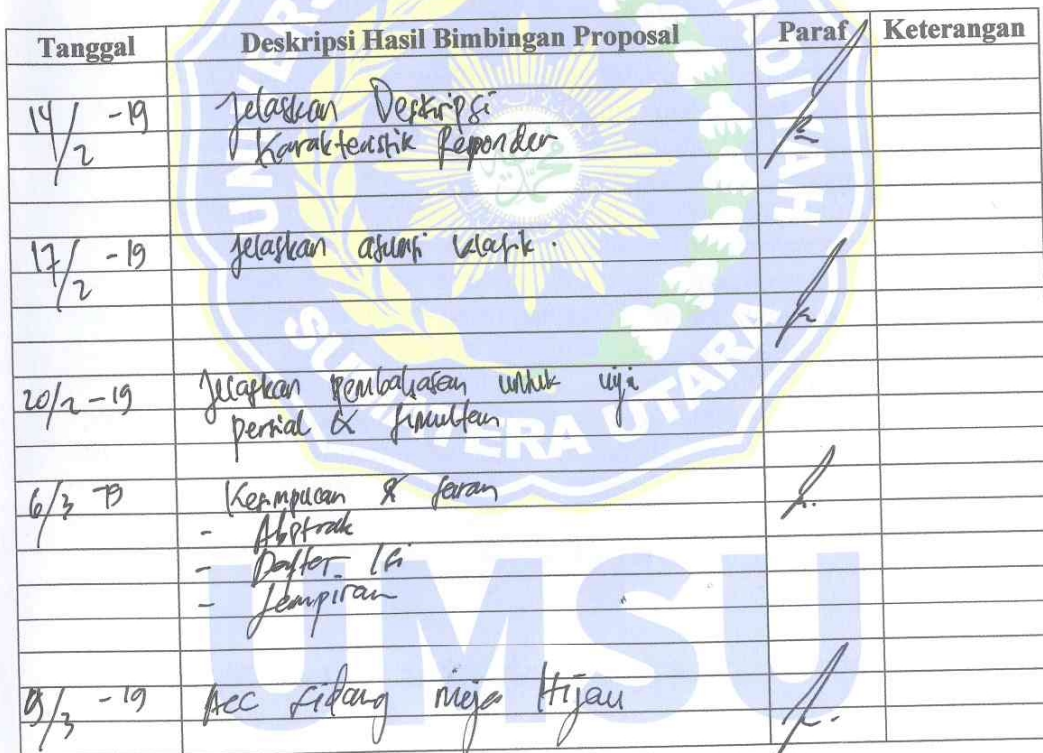 Tanggal Deskripsi Hasil Bimbingan Proposal Paraf Keterangan
14/2 -19 Jelaskan Deskripsi
Karakteristik Responden
17/2 -19 Jelaskan asumsi klasik.
20/2-19 Jelaskan pembahasan untuk uji
persial & simultan
6/3 -19 Kesimpulan & saran
- Abstrak
- Daftar Isi
- Lampiran
9/3 -19 Acc Sidang meja Hijau
UNIVERS
SUMATERA UTARA
UMSU